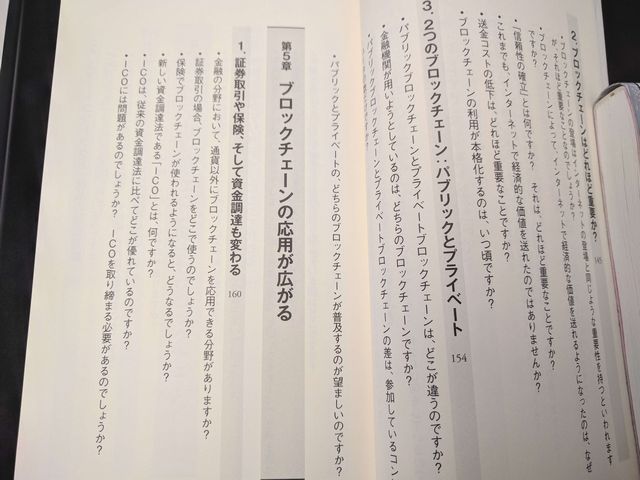 2. ブロックチェーンはどれほど重要か? 145
・ブロックチェーンの登場はインターネットの登場と同じような重要性を持つといわれます
が、それほど重要なことなのでしょうか?
・ブロックチェーンによって、インターネットで経済的な価値を送れるようになったのは、なぜ
ですか?
・「信頼性の確立」とは何ですか? それは、どれほど重要なことですか?
・これまでも、インターネットで経済的な価値を送れたのではありませんか?
・送金コストの低下は、どれほど重要なことですか?
・ブロックチェーンの利用が本格化するのは、いつ頃ですか?
3. 2つのブロックチェーン:パブリックとプライベート 154
・パブリックブロックチェーンとプライベートブロックチェーンは、どこが違うのですか?
・金融機関が用いようとしているのは、どちらのブロックチェーンですか?
・パブリックブロックチェーンとプライベートブロックチェーンの差は、参加しているコン
・パブリックとプライベートの、どちらのブロックチェーンが普及するのが望ましいのですか?
第5章 ブロックチェーンの応用が広がる
1. 証券取引や保険、そして資金調達も変わる 160
・金融の分野において、通貨以外にブロックチェーンを応用できる分野がありますか?
・証券取引の場合、ブロックチェーンをどこで使うのでしょうか?
・保険でブロックチェーンが使われるようになると、どうなるでしょうか?
・新しい資金調達法である「ICO」とは、何ですか?
・ICOは、従来の資金調達法に比べてどこが優れているのですか?
・ICOには問題があるのでしょうか? ICOを取り締まる必要があるのでしょうか?